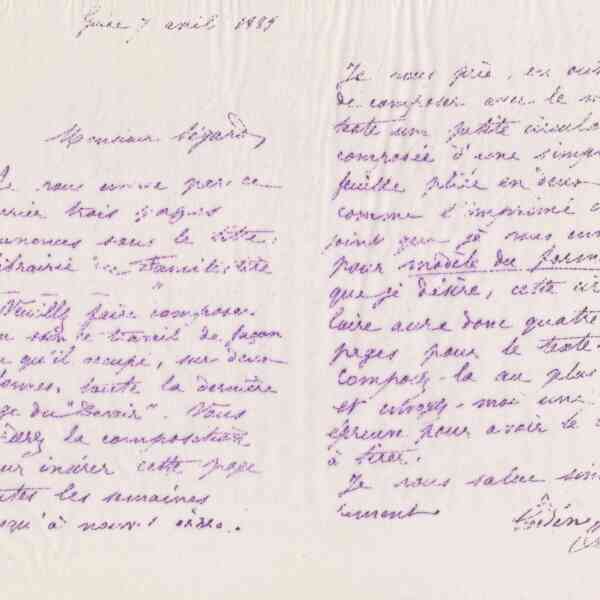 Guise 7 avril 1889
Monsieur Légard,
Je vous envoie par ce
rrier trois pages
nnonces sous le titre:
ibrairie du Familistère
Veuillez faire compose
n soin ce travail de façon
qu'il occupe, sur deux
onnes, toute la dernière
ge du "Devoir". Vous
la composition
ur insérer cette page
utes les semaines
squ'à nouvel ordre.
Je vous prie, en out
de composer avec le m
texte une petite circula
composée d'une simp
feuille pliée en deux
comme l'imprimé
joint que je vous env
pour modèle du form
que je désire, cette cir
laire aura donc quatre
pages pour le texte.
Composez-la au plus
et envoyez-moi une
épreuve pour avoir le
à tirer.
Je vous salue sin
rement
Godin